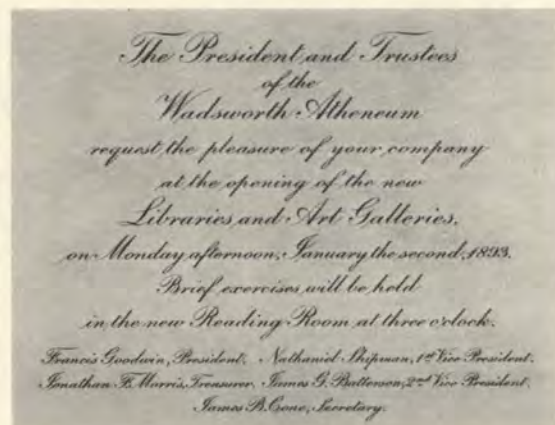 The President and Trustees
of the
Wadsworth Atheneum
request the pleasure of your company
at the opening of the new
Libraries and Art Galleries,
on Monday afternoon, January the second, 1893.
Brief exercises will be held
in the new Reading Room at three o'clock.
Francis Goodwin, President. Nathaniel Shipman, 1st Vice President.
Jonathan B. Morris, Treasurer. James G. Batterson, 2nd Vice President.
James B. Cone, Secretary.